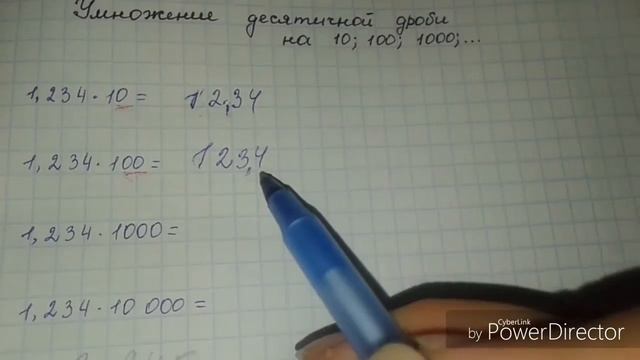 Умножение десятичной дроби
на 10; 100; 1000;...
1,234·10= 12,34
1,234·100= 123,4
1,234·1000=
1,234·10 000=
CyberLink
by PowerDirector